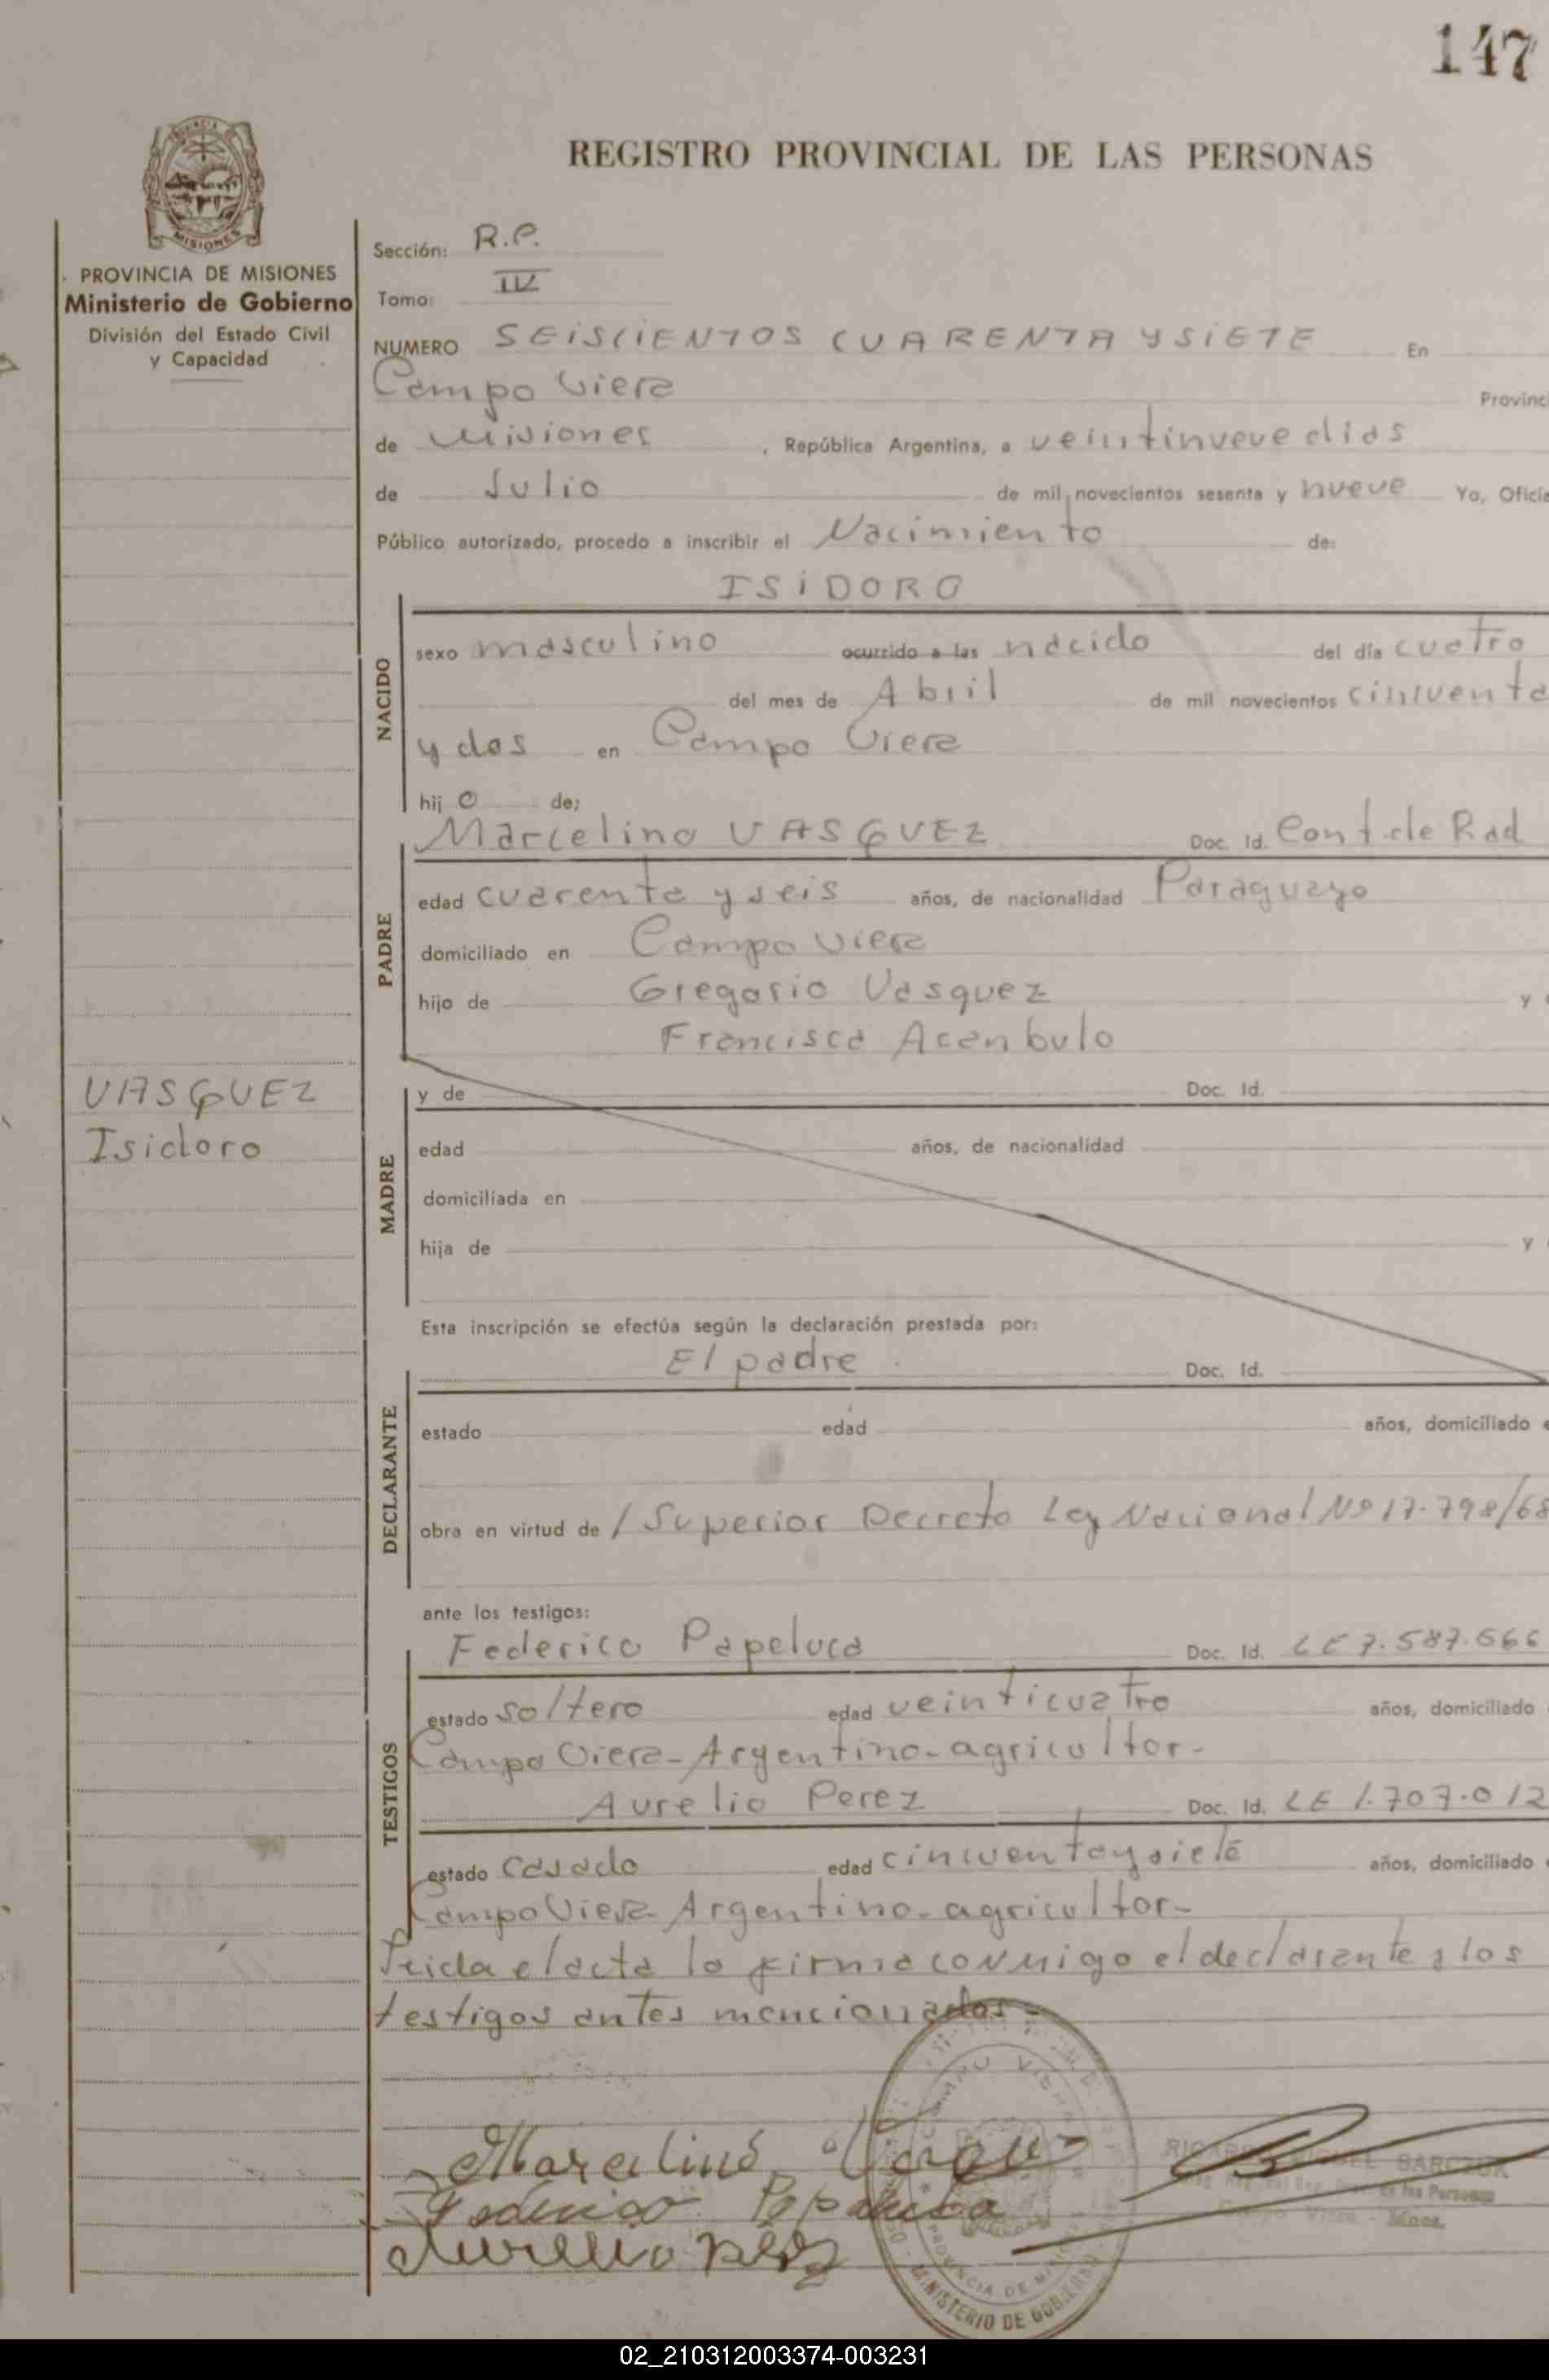 147
REGISTRO PROVINCIAL DE LAS PERSONAS
MISIONES
PROVINCIA DE MISIONES
Ministerio de Gobierno
División del Estado Civil
y Capacidad
Sección: R.P.
Tomo: IV
NUMERO SEISCIENTOS CUARENTA Y SIETE En
Campo Viera Provinc
de Misiones , República Argentina, a veintinueve dias
de Julio de mil novecientos sesenta y nueve Yo, Oficia
Público autorizado, procedo a inscribir el Nacimiento de:
ISIDORO
NACIDO
sexo masculino ocurrido a las nacido del día cuatro
del mes de Abril de mil novecientos cincuenta
y dos en Campo Viera
hij o de;
PADRE
Marcelino VASQUEZ Doc. Id. Cont. de Rad
edad cuarenta y seis años, de nacionalidad Paraguayo
domiciliado en Campo Viera
hijo de Gregorio Vasquez y
Francisca
VASQUEZ
Isidoro
MADRE
y de Doc. Id.
edad años, de nacionalidad
domiciliada en
hija de y
Esta inscripción se efectúa según la declaración prestada por:
DECLARANTE
El padre Doc. Id.
estado edad años, domiciliado e
obra en virtud de / Superior Decreto Ley Nacional Nº 17.798/68
ante los testigos:
TESTIGOS
Federico Papeluca Doc. Id. LE 7.587.566
estado soltero edad veinticuatro años, domiciliado
Campo Viera-Argentino-agricultor-
Aurelio Perez Doc. Id. LE 1.707.012
estado casado edad cincuenta y siete años, domiciliado
Campo Viera Argentino-agricultor-
Leida el acta la firma conmigo el declarante y los
testigos antes mencionados-
Marcelino
Federico Papeluca
Aurelio Perez
BARCZUK
de las Personas
Campo Viera - Mnes.
CAMPO VIERA
PROVINCIA DE MISIONES
MINISTERIO DE GOBIERNO
02_210312003374-003231